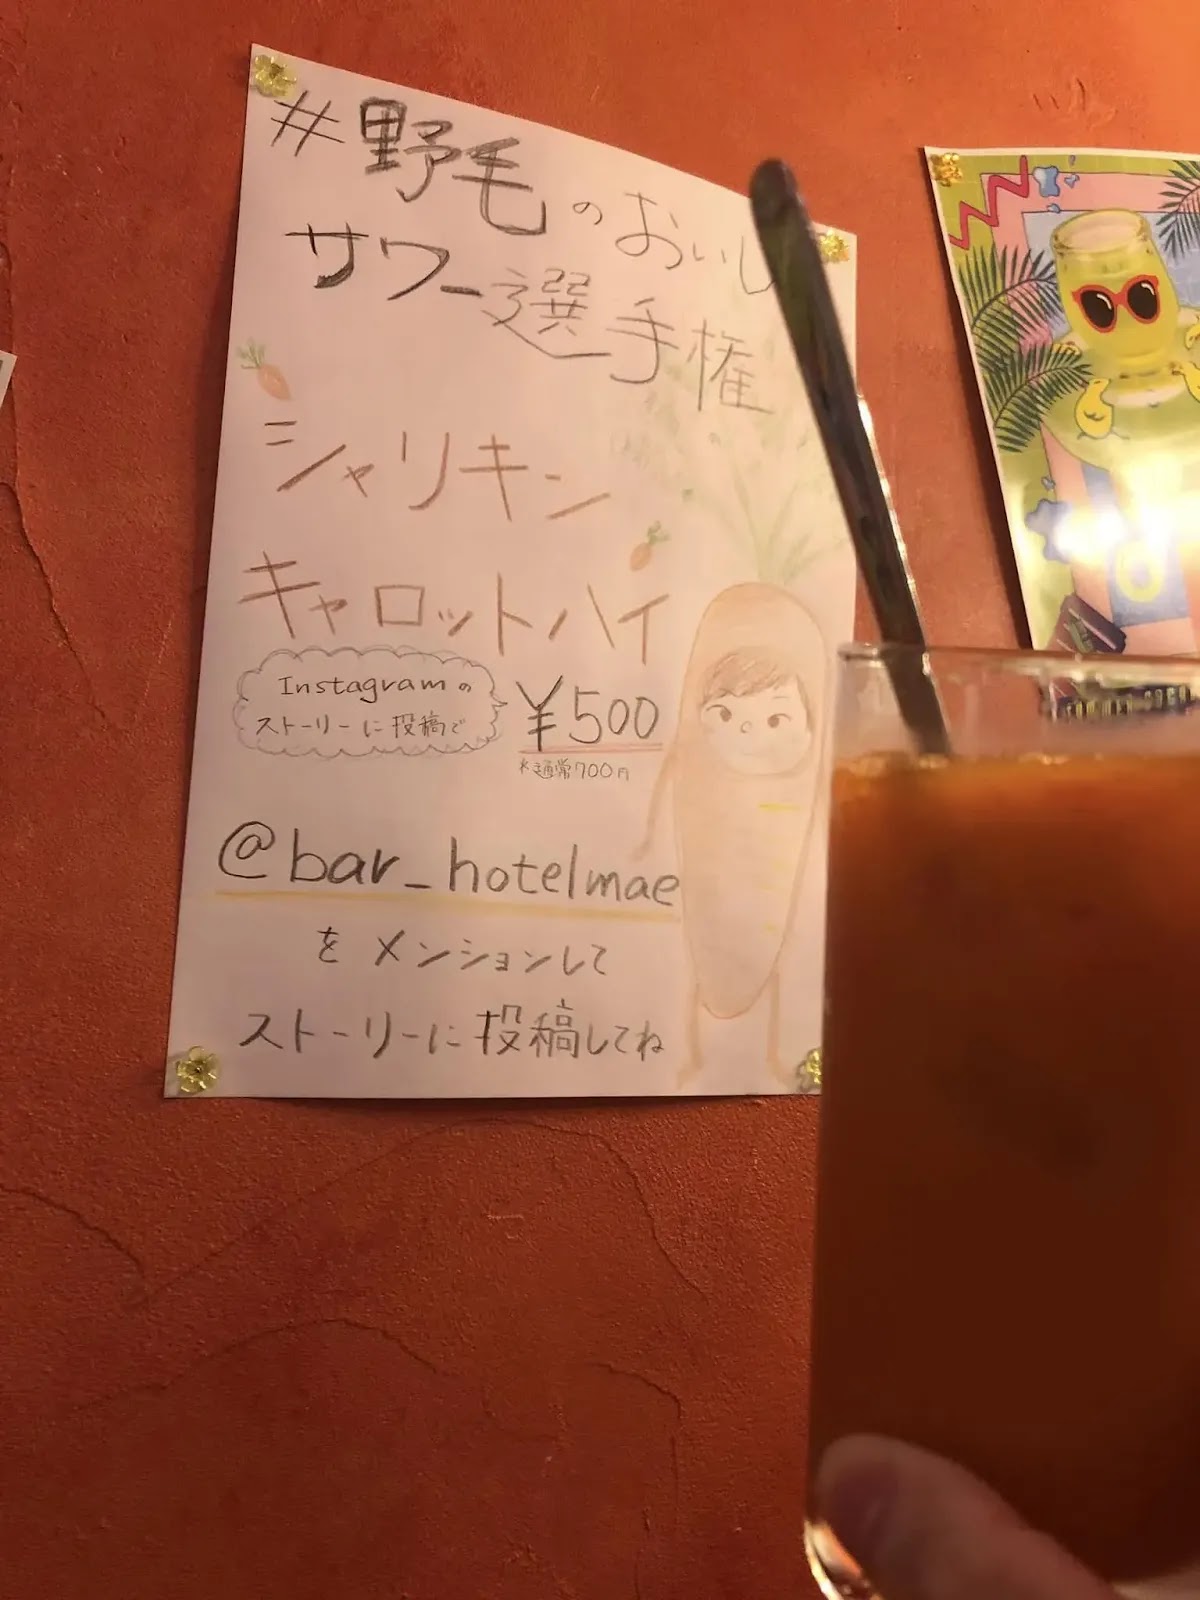 #野毛のおいし
サワー選手権
シャリキン
キャロットハイ
Instagramの
ストーリーに投稿で
¥500
*通常700円
@bar_hotelmae
をメンションして
ストーリーに投稿してね